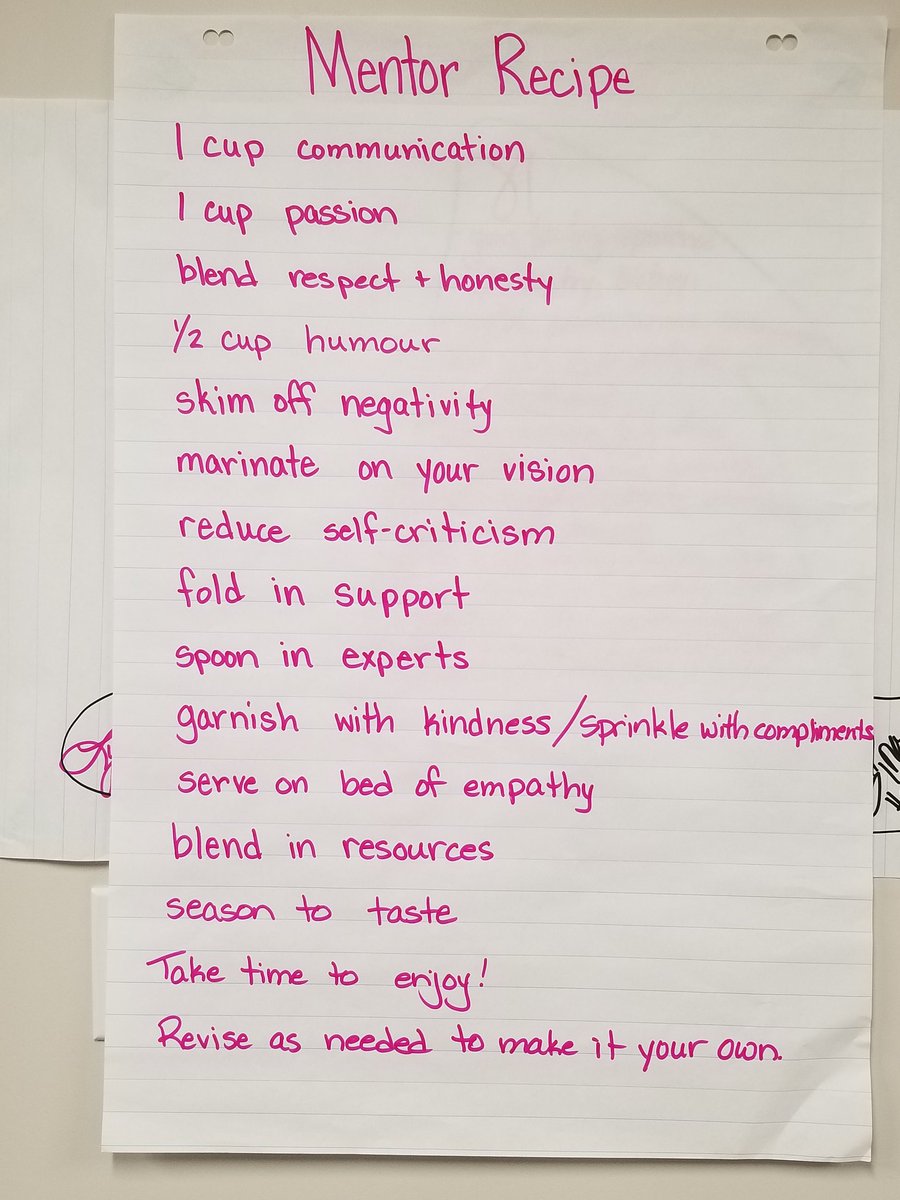 Mentor Recipe
1 cup communication
1 cup passion
blend respect + honesty
1/2 cup humour
skim off negativity
marinate on your vision
reduce self-criticism
fold in support
spoon in experts
garnish with kindness / sprinkle with compliments
serve on bed of empathy
blend in resources
season to taste
Take time to enjoy!
Revise as needed to make it your own.